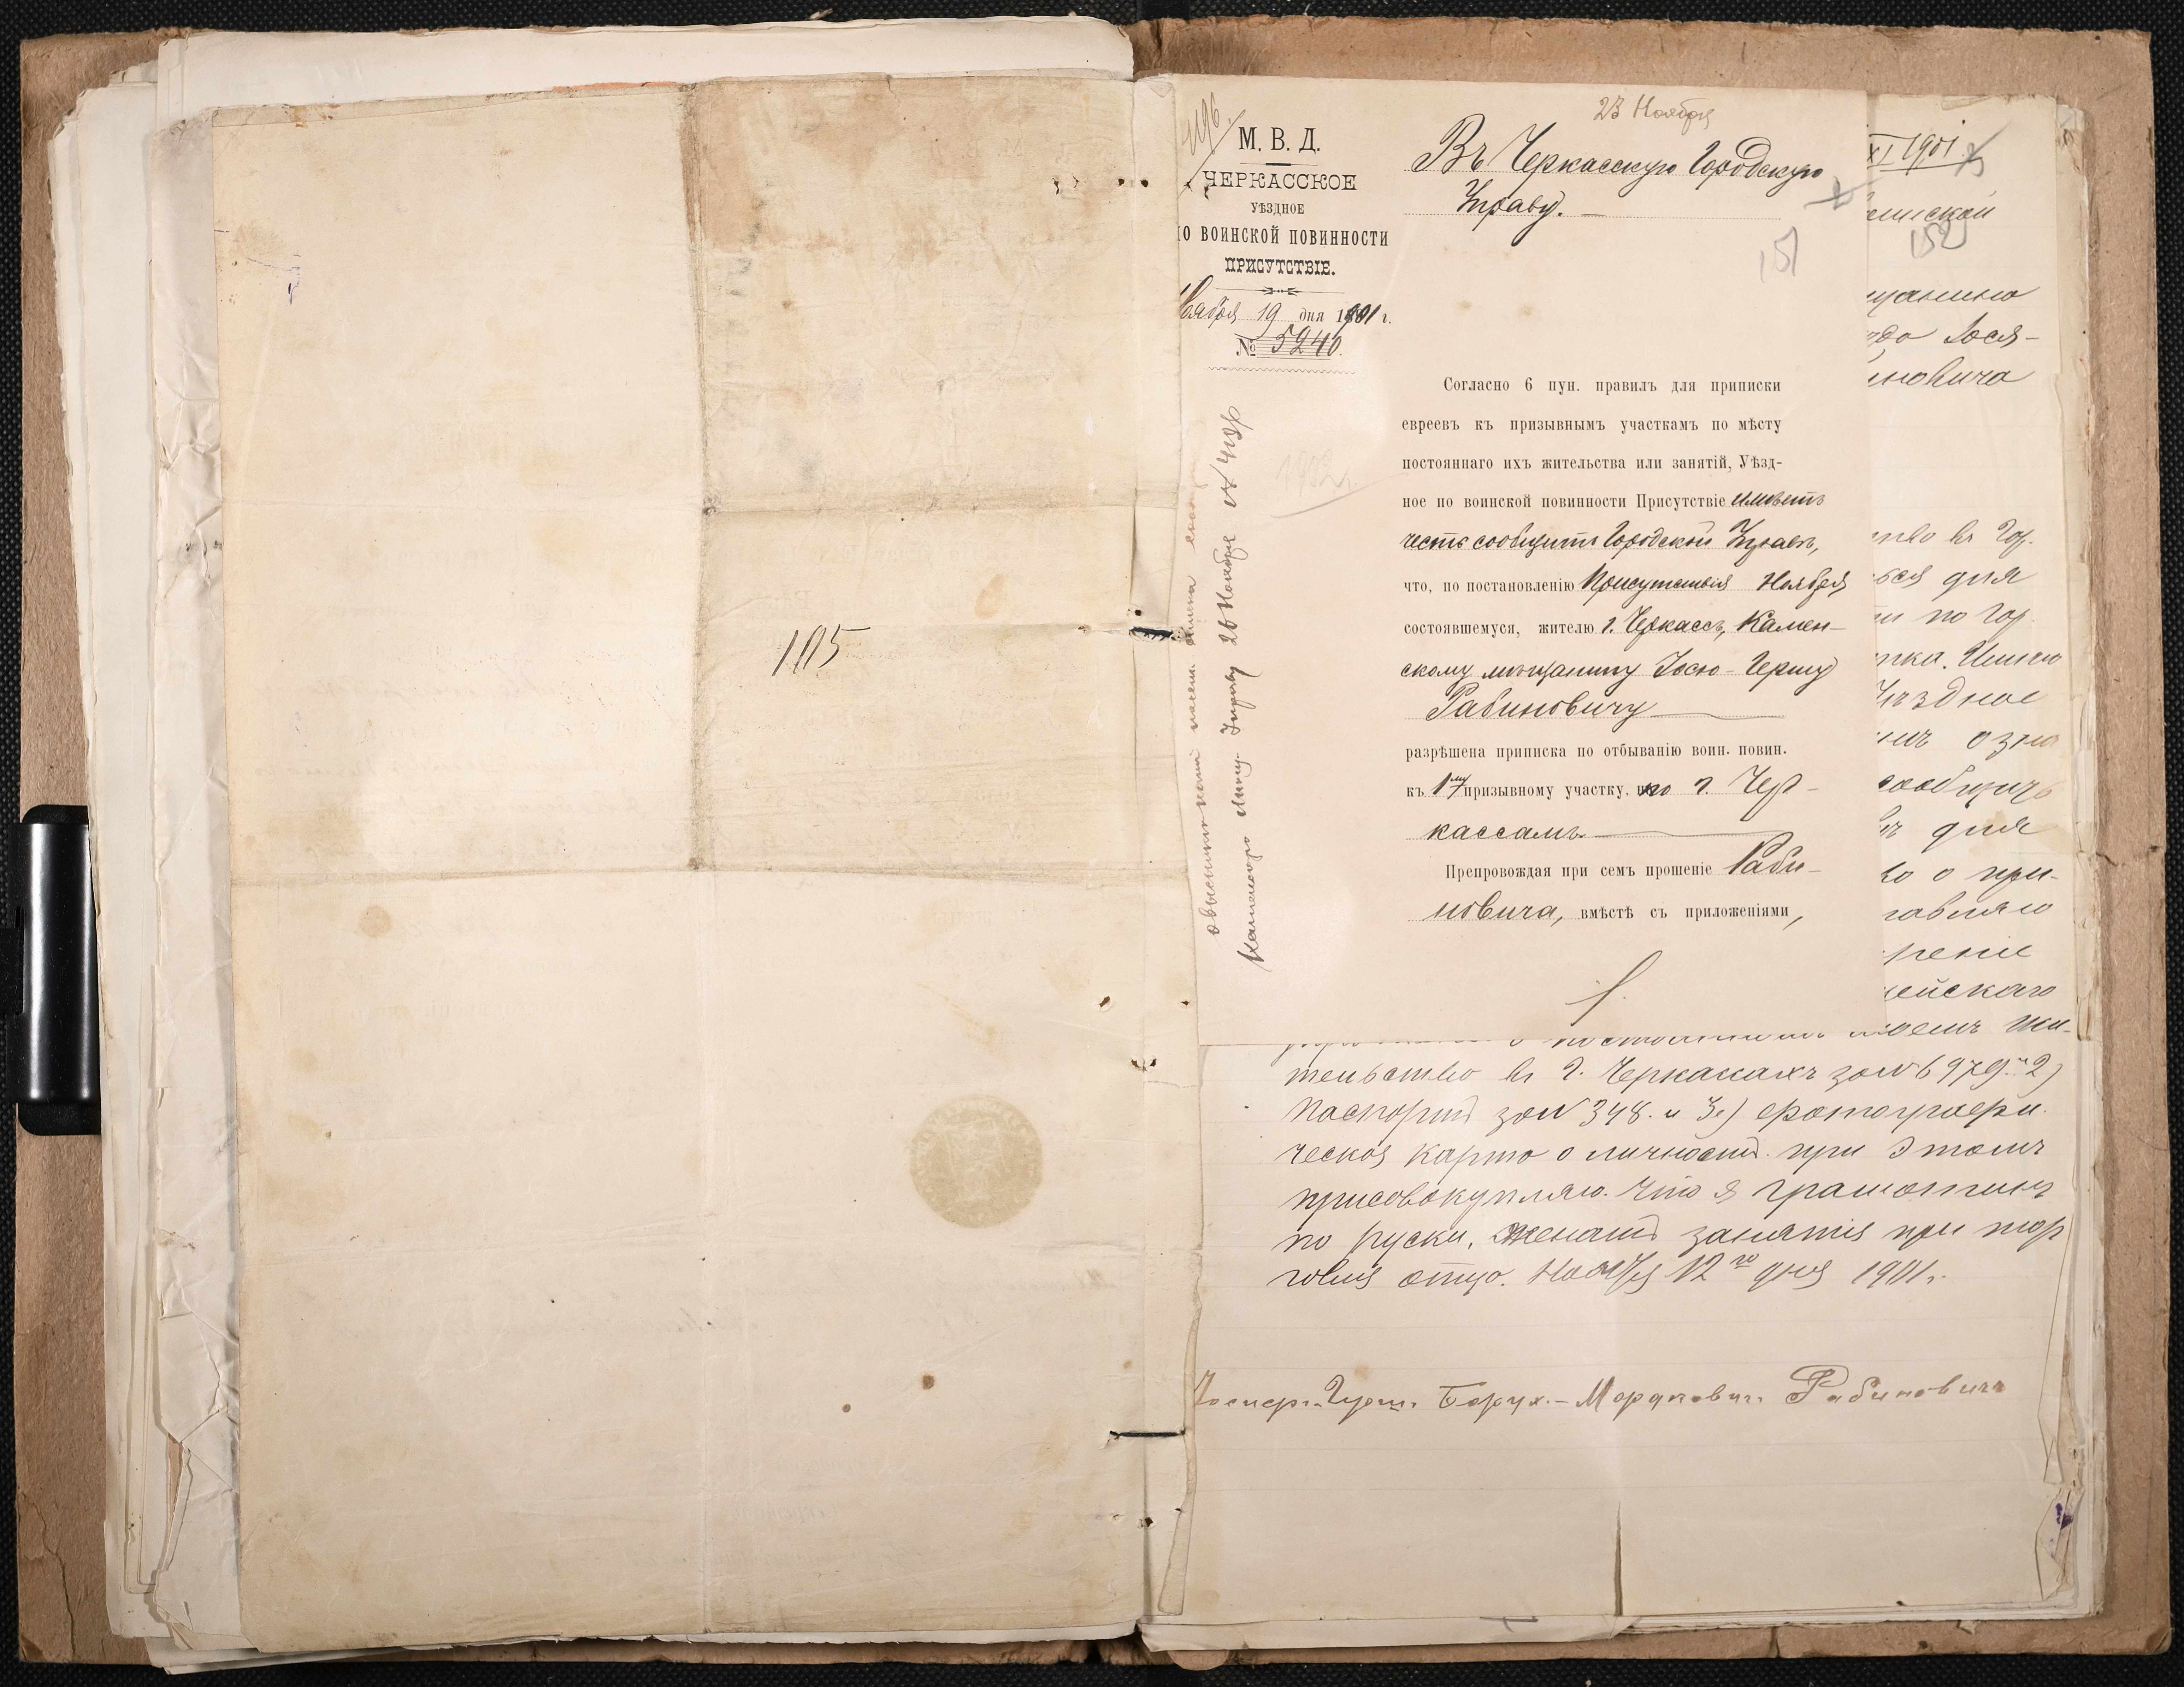 1105
4196
М. В. Д.
ЧЕРКАССКОЕ
УѢЗДНОЕ
ПО ВОИНСКОЙ ПОВИННОСТИ
ПРИСУТСТВІЕ.
Ноября 19 дня 1901 г.
№ 5240
23 Ноября
Въ Черкасскую Городскую
Управу.
151
Согласно 6 пун. правилъ для приписки
евреевъ къ призывнымъ участкамъ по мѣсту
постояннаго ихъ жительства или занятій, Уѣзд-
ное по воинской повинности Присутствіе имѣетъ
честь сообщить Городской Управѣ,
что, по постановленію Присутствія Ноября
состоявшемуся, жителю г. Черкассъ, Камен-
скому мѣщанину Іосю-Гершу
Рабиновичу
разрѣшена приписка по отбыванію воин. повин.
къ 1му призывному участку, по г. Чер-
кассамъ.
Препровождая при семъ прошеніе Раби-
новича, вмѣстѣ съ приложеніями,
Управу 26 Ноября
1902 г.
XI 1901
152
Іося-
иновича
въ Гор.
ься для
по Гор.
тка. Имѣю
Уѣздное
сообщить
для
о при-
ейскаго
моемъ жи-
тельство въ г. Черкасахъ за № 6979. 2)
Паспортъ за № 348. и 3.) фотографи
ческоя карто о личности. при этомъ
присовокупляю. что я грамотинъ
по руски, женатъ занятія при тор
говлѣ отца. Ноября 12го дня 1901 г.
Іосифъ-Гершъ Борухъ-Мордковичъ Рабиновичъ